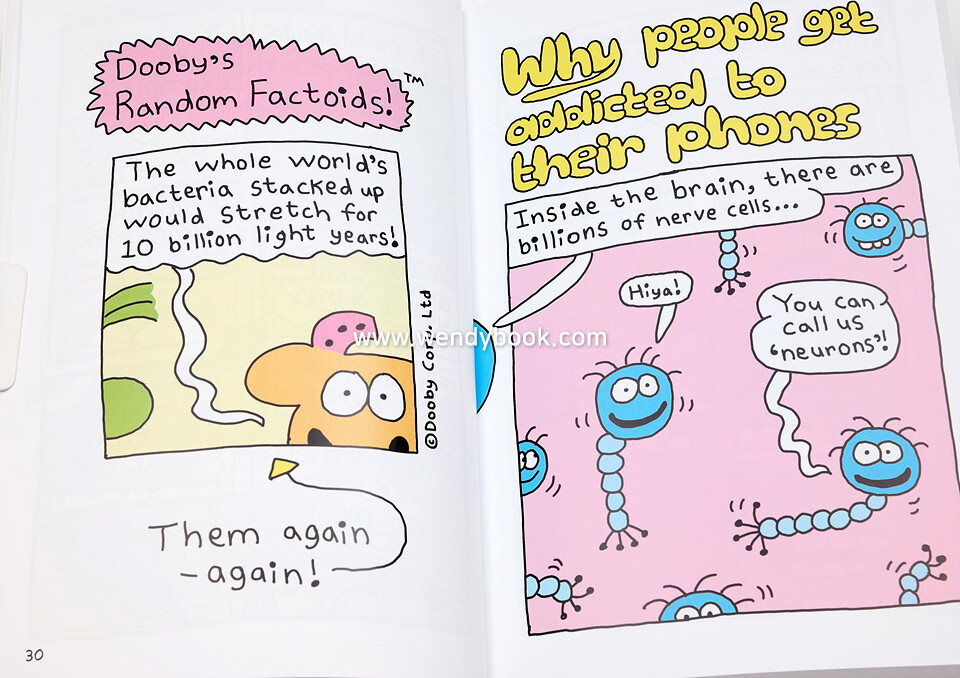 Dooby's
Random Factoids!™
The whole world's
bacteria stacked up
would stretch for
10 billion light years!
©Dooby Corp. Ltd
Them again
- again!
30
Why people get
addicted to
their phones
Inside the brain, there are
billions of nerve cells...
Hiya!
You can
call us
'neurons'!
www.wendybook.com